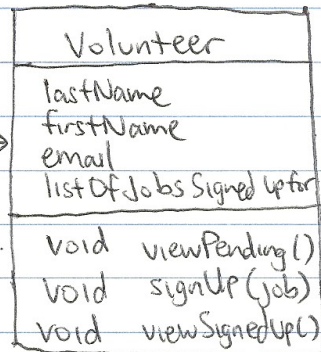 Volunteer
lastName
firstName
email
listOfJobsSignedUpfor
void viewPending()
void signUp(job)
void viewSignedUp()